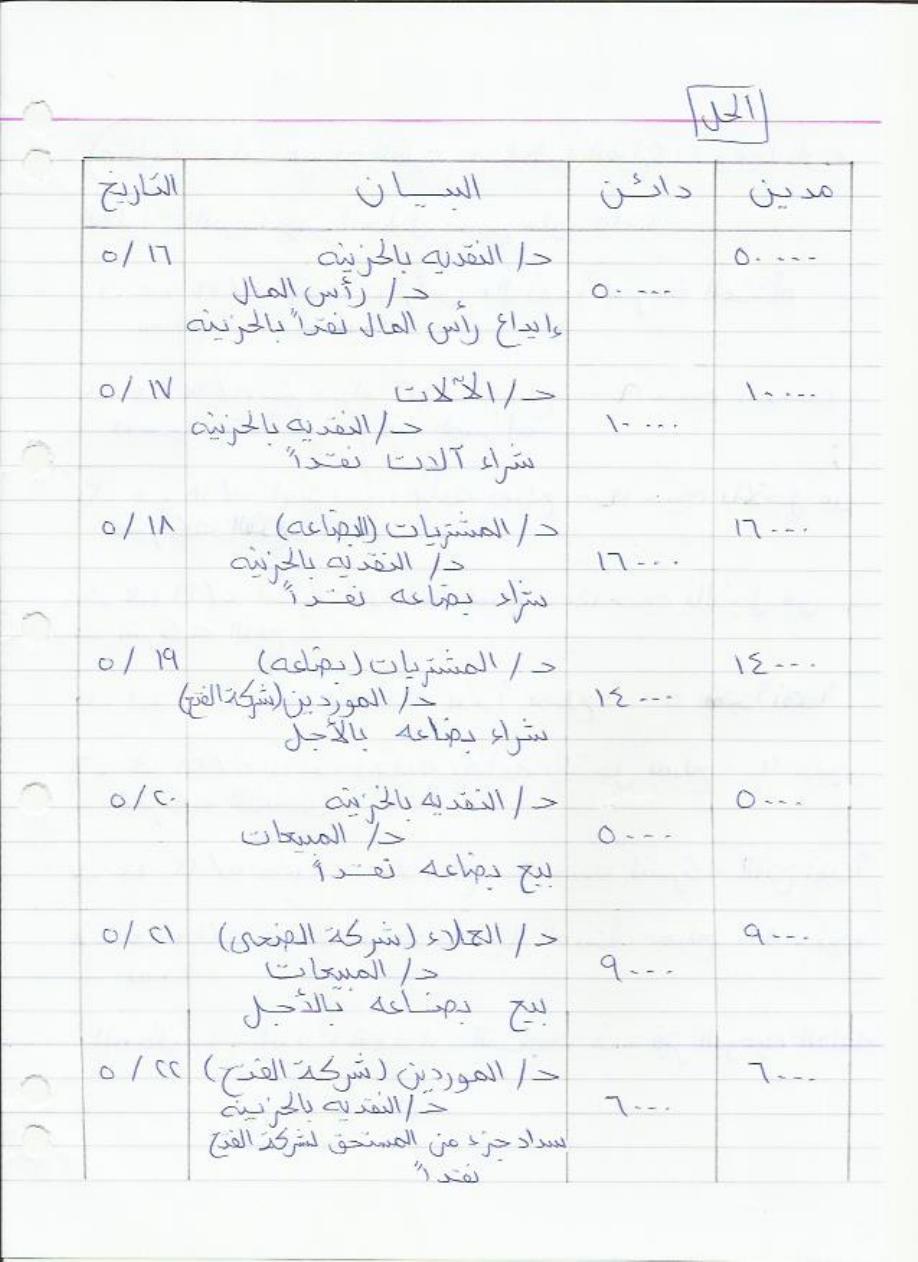 الحل
مدين دائن البيـــان التاريخ
٥٠٠٠٠ حـ/ النقديه بالخزينه ٥/ ١٦
٥٠٠٠٠ حـ/ رأس المال
إيداع رأس المال نقداً بالخزينه
١٠٠٠٠ حـ/ الآلات ٥/ ١٧
١٠٠٠٠ حـ/ النقديه بالخزينه
شراء آلات نقداً
١٦٠٠٠ حـ/ المشتريات (البضاعه) ٥/ ١٨
١٦٠٠٠ حـ/ النقديه بالخزينه
شراء بضاعه نقداً
١٤٠٠٠ حـ/ المشتريات (بضاعه) ٥/ ١٩
١٤٠٠٠ حـ/ الموردين (شركة الفتح)
شراء بضاعه بالأجل
٥٠٠٠ حـ/ النقديه بالخزينه ٥/ ٢٠
٥٠٠٠ حـ/ المبيعات
بيع بضاعه نقداً
٩٠٠٠ حـ/ العملاء (شركة الضحى) ٥/ ٢١
٩٠٠٠ حـ/ المبيعات
بيع بضاعه بالأجل
٦٠٠٠ حـ/ الموردين (شركة الفتح) ٥/ ٢٢
٦٠٠٠ حـ/ النقديه بالخزينه
سداد جزء من المستحق لشركة الفتح
نقداً